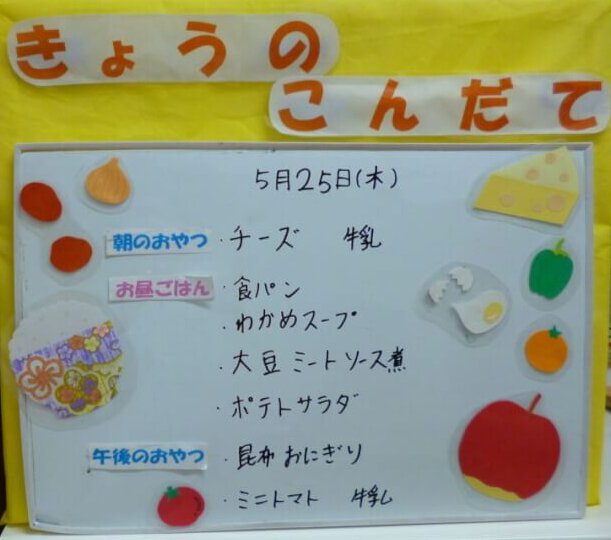 きょうの
こんだて
5月25日(木)
朝のおやつ ・チーズ 牛乳
お昼ごはん ・食パン
・わかめスープ
・大豆ミートソース煮
・ポテトサラダ
午後のおやつ ・昆布おにぎり
・ミニトマト 牛乳